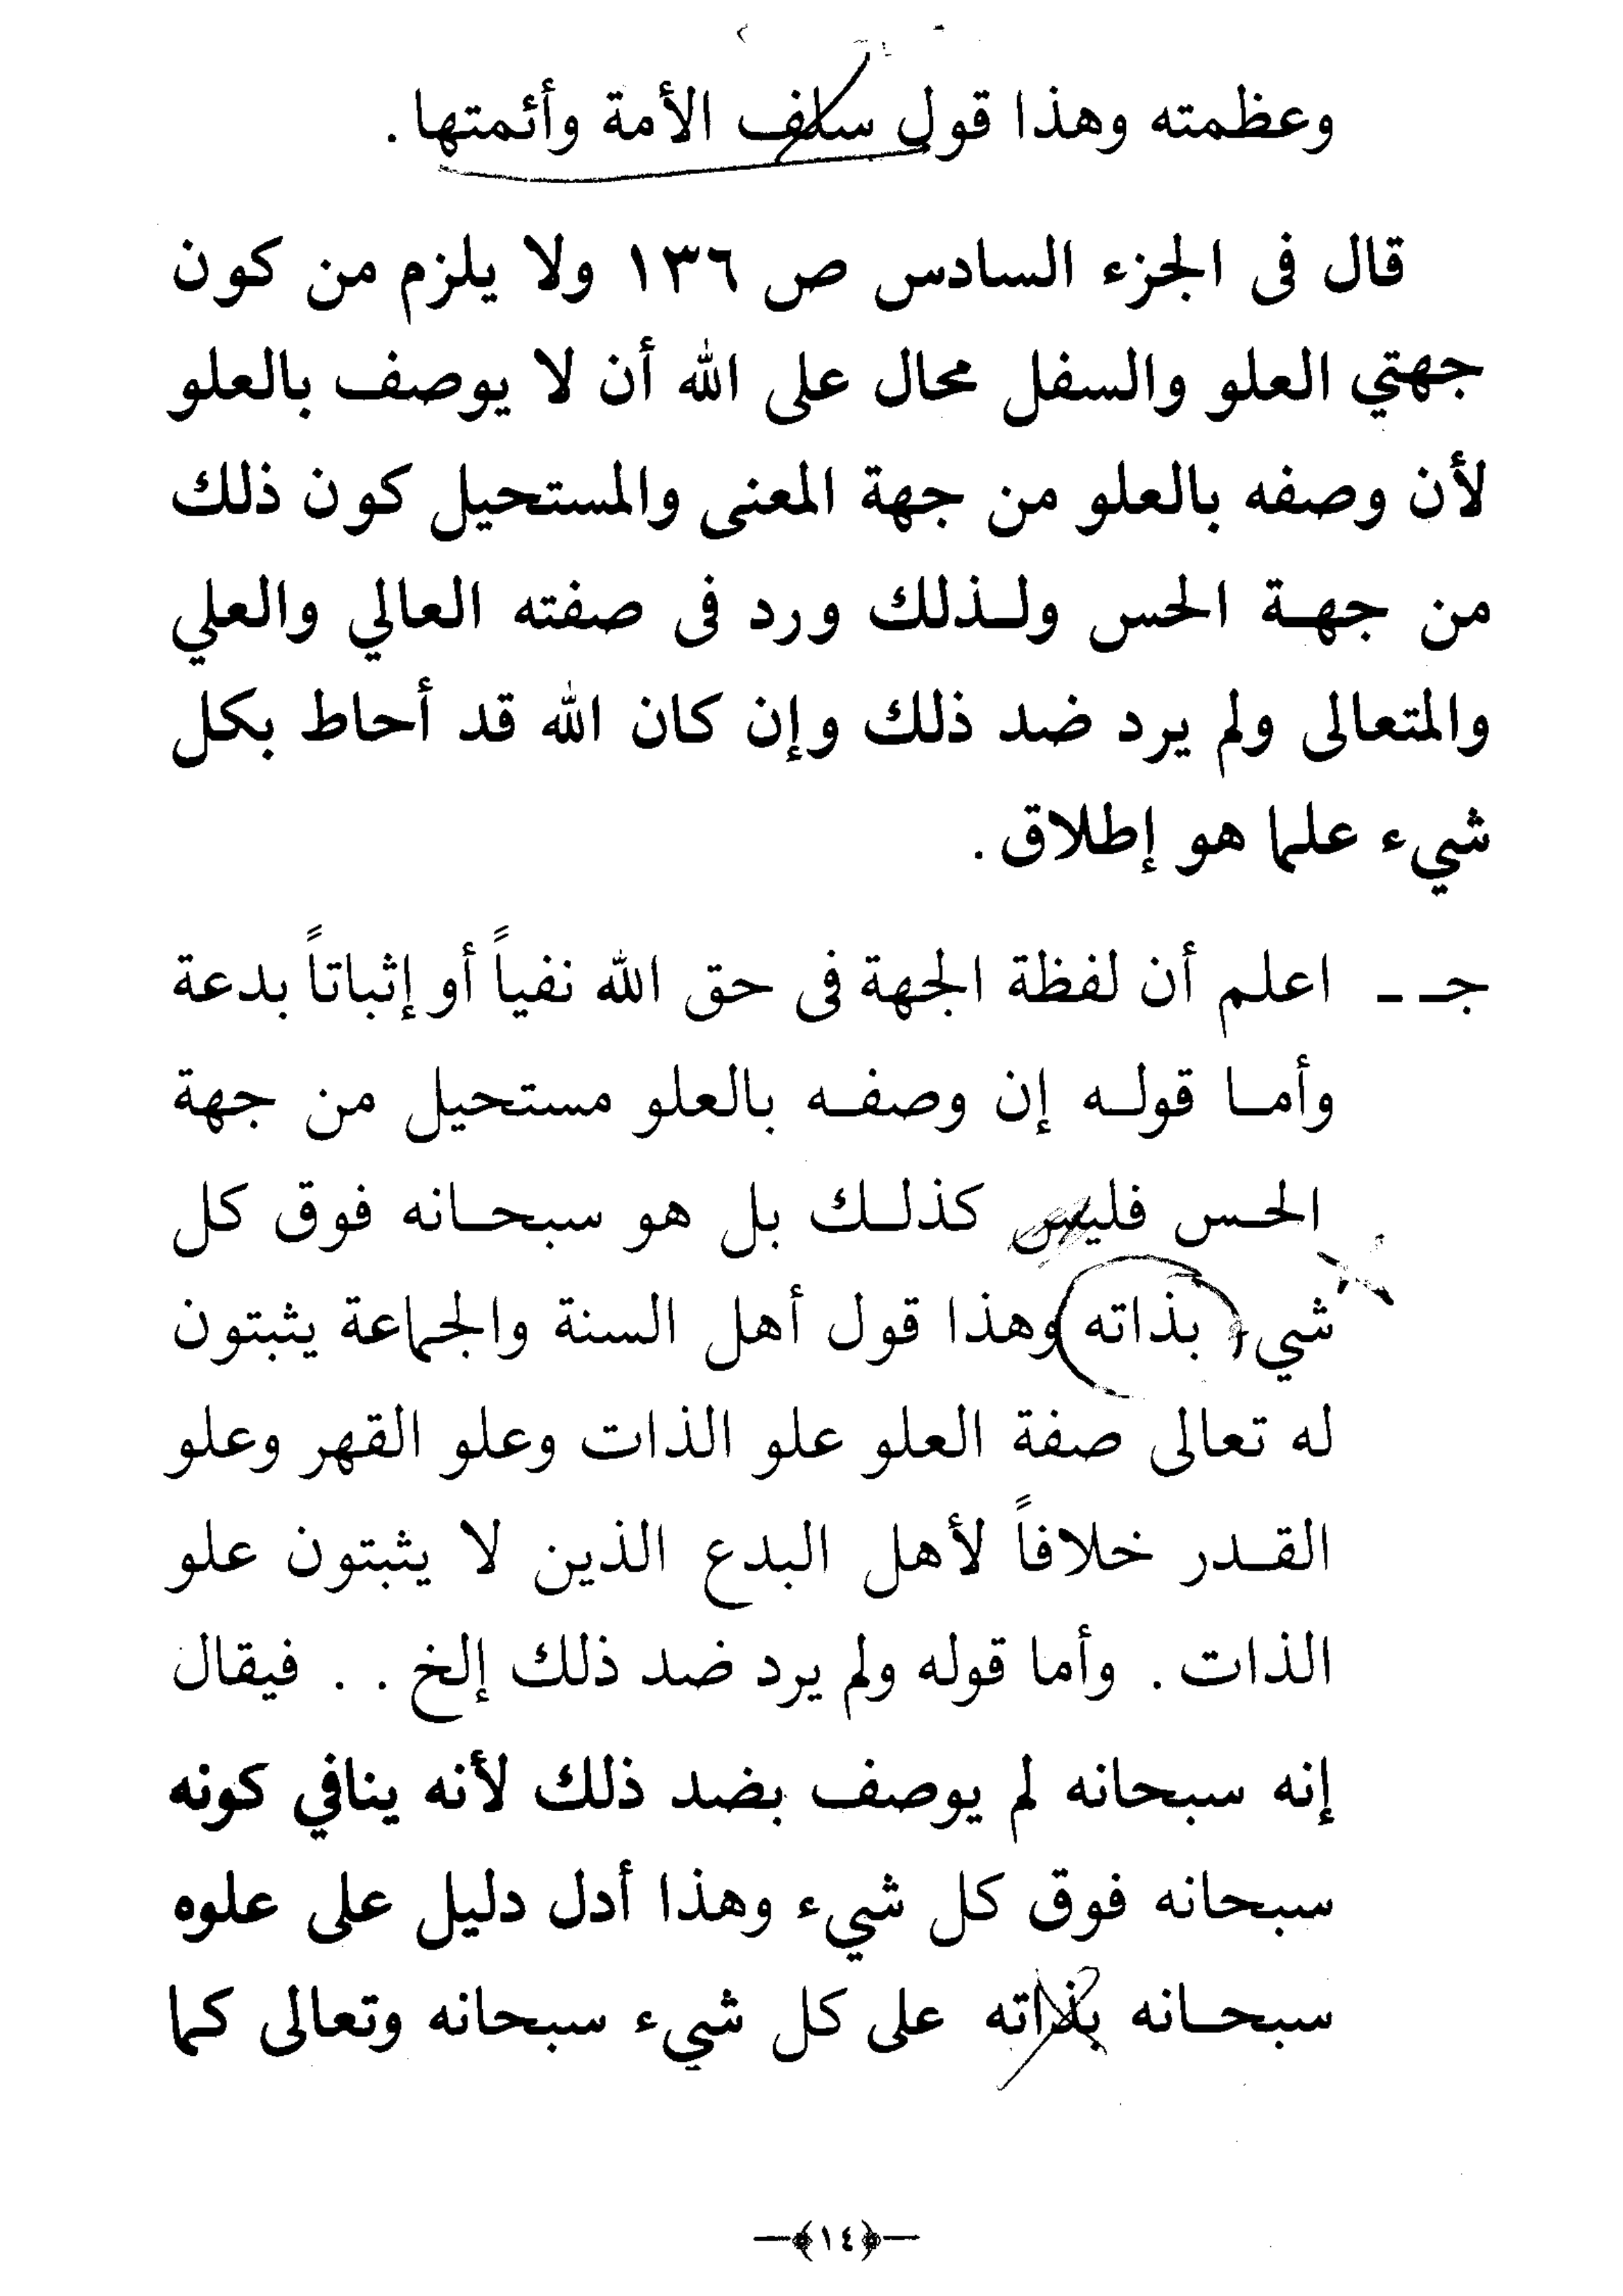 وعظمته وهذا قول سلف الأمة وأئمتها .
قال فى الجزء السادس ص ١٣٦ ولا يلزم من كون
جهتي العلو والسفل محال على الله أن لا يوصف بالعلو
لأن وصفه بالعلو من جهة المعنى والمستحيل كون ذلك
من جهـة الحس ولـذلك ورد فى صفته العالي والعلي
والمتعالى ولم يرد ضد ذلك وإن كان الله قد أحاط بكل
شيء علما هو إطلاق .
جـ ـ اعلم أن لفظة الجهة فى حق الله نفياً أو إثباتاً بدعة
وأمـا قولـه إن وصفـه بالعلو مستحيل من جهة
الحـس فليس كذلـك بل هو سبحـانه فوق كل
شيء بذاته وهذا قول أهل السنة والجماعة يثبتون
له تعالى صفة العلو علو الذات وعلو القهر وعلو
القـدر خلافاً لأهل البدع الذين لا يثبتون علو
الذات . وأما قوله ولم يرد ضد ذلك إلخ . . فيقال
إنه سبحانه لم يوصف بضد ذلك لأنه ينافي كونه
سبحانه فوق كل شيء وهذا أدل دليل على علوه
سبحـانه بذاته على كل شيء سبحانه وتعالى كما
١٤